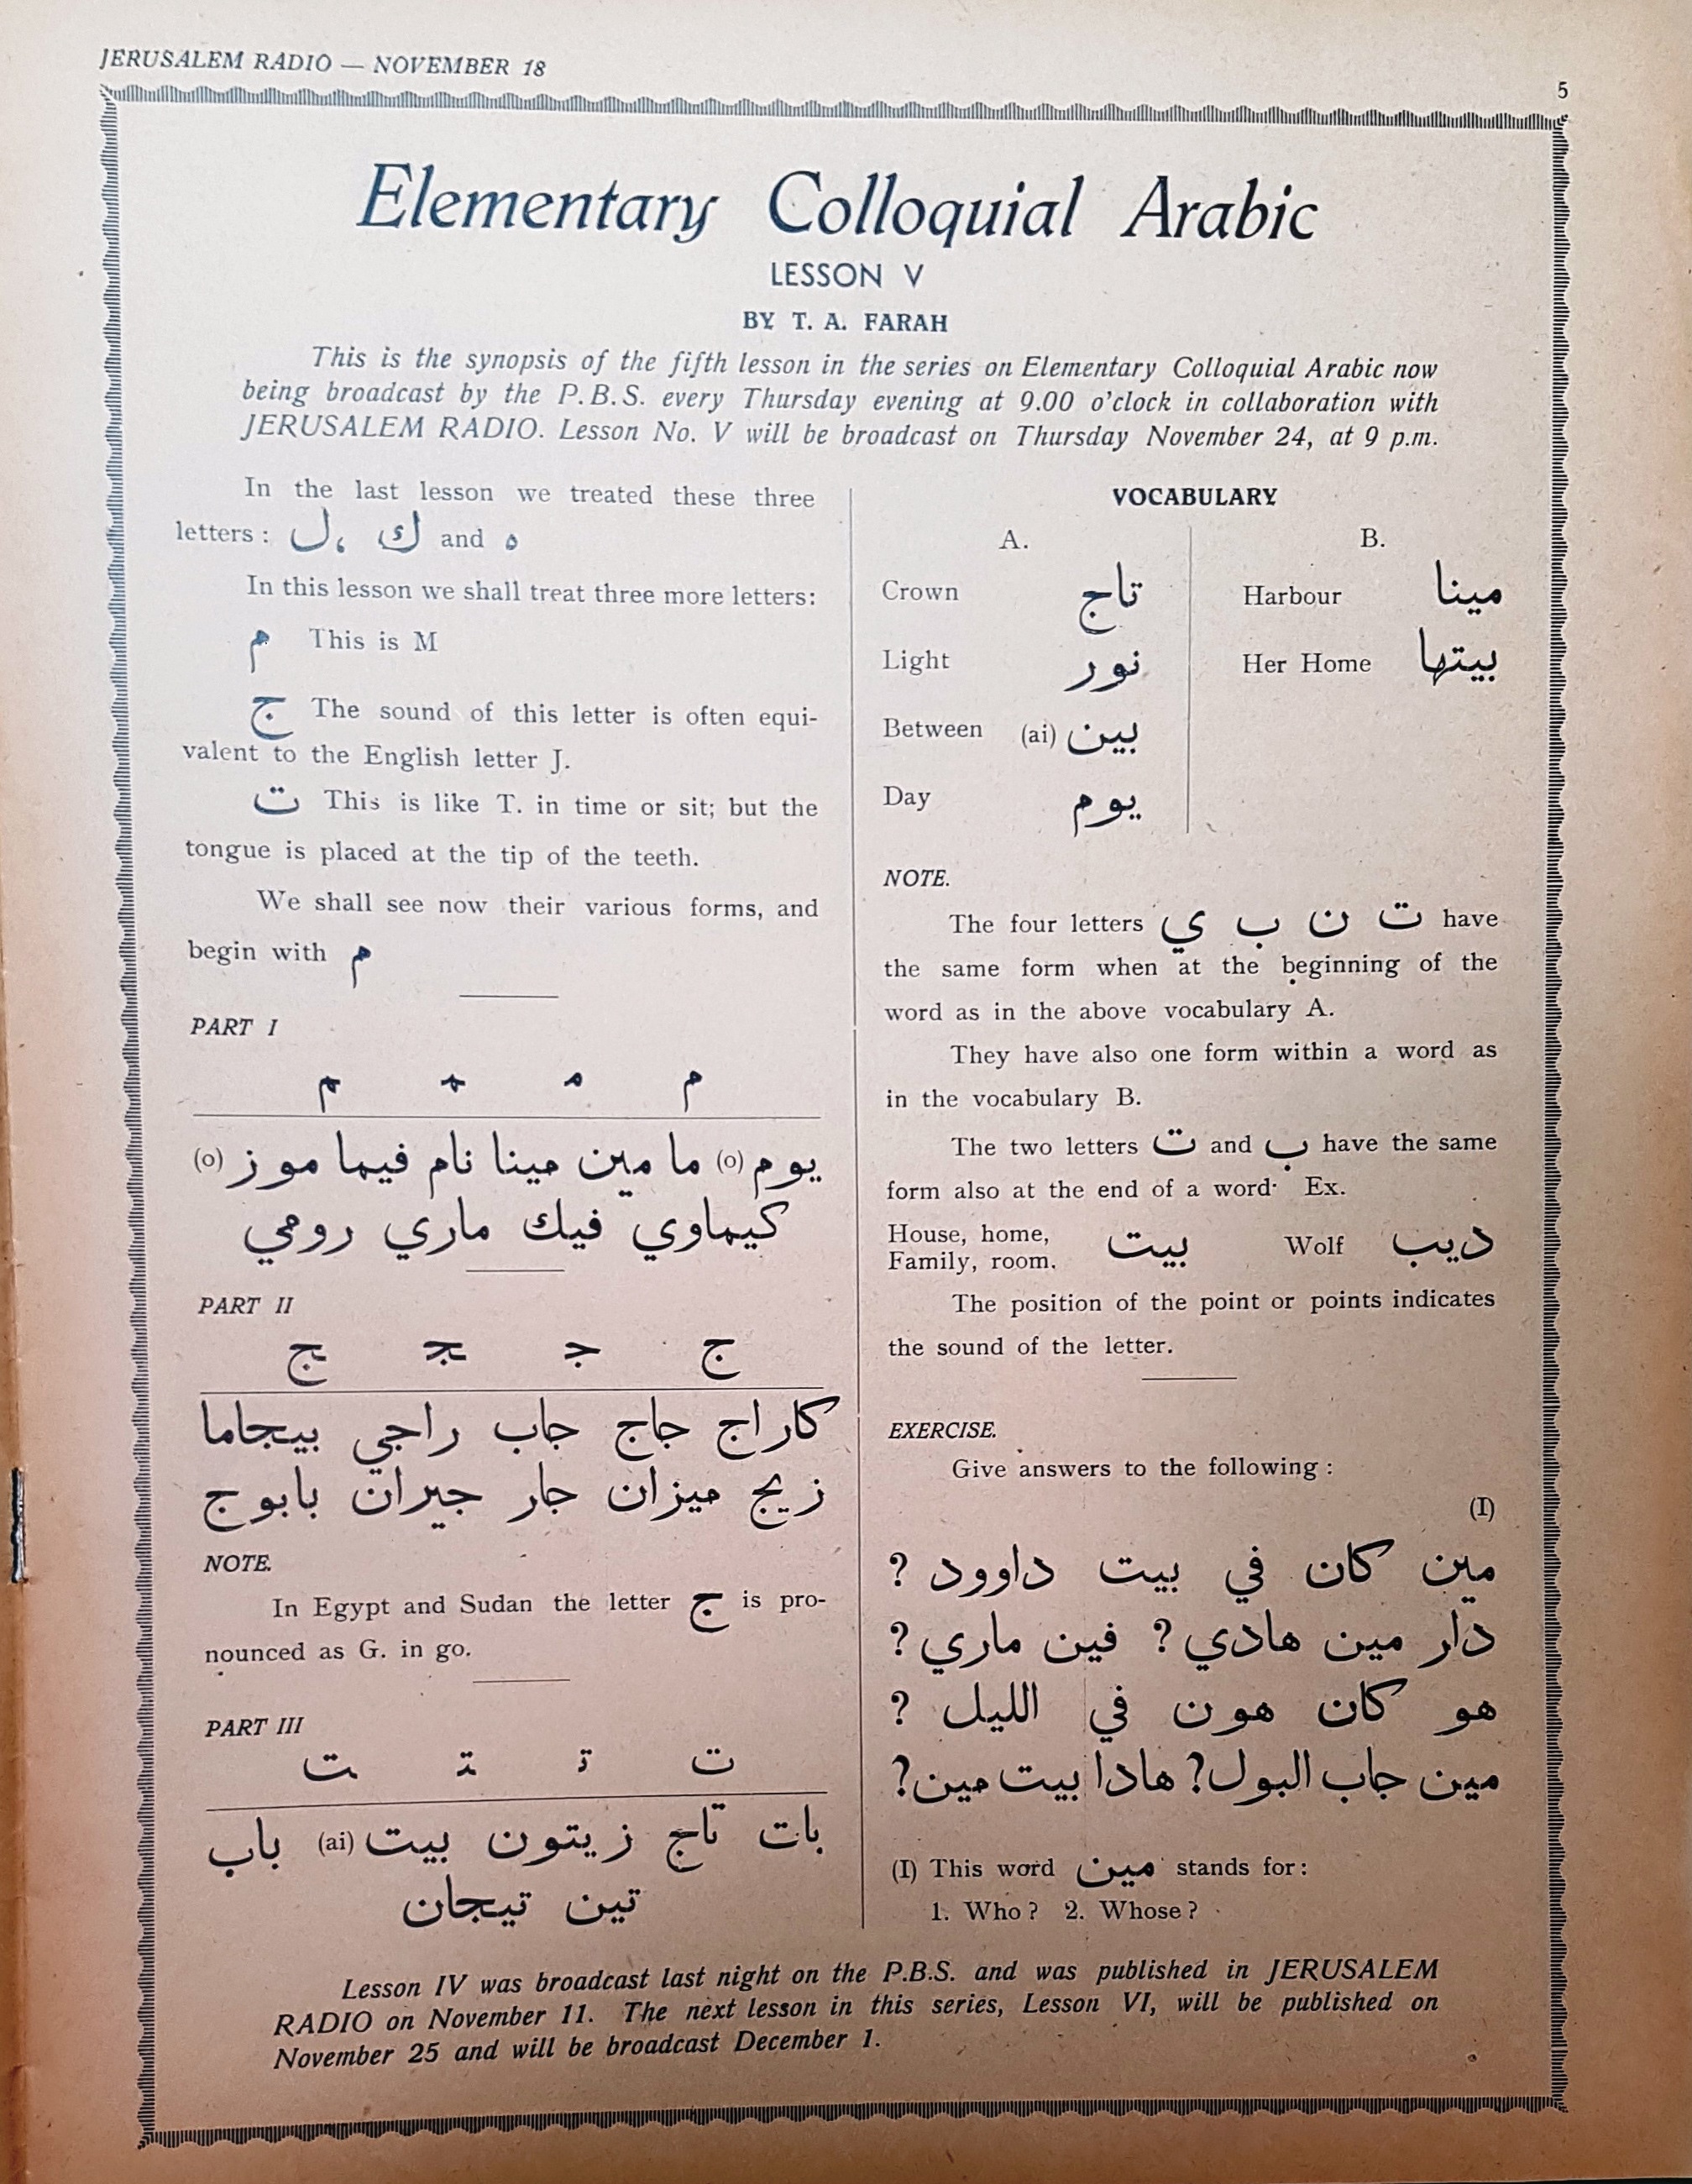 JERUSALEM RADIO — NOVEMBER 18
5
Elementary Colloquial Arabic
LESSON V
BY T. A. FARAH
This is the synopsis of the fifth lesson in the series on Elementary Colloquial Arabic now
being broadcast by the P.B.S. every Thursday evening at 9.00 o'clock in collaboration with
JERUSALEM RADIO. Lesson No. V will be broadcast on Thursday November 24, at 9 p.m.
In the last lesson we treated these three
letters : ل، ك and ه
In this lesson we shall treat three more letters:
م This is M
ج The sound of this letter is often equi-
valent to the English letter J.
ت This is like T. in time or sit; but the
tongue is placed at the tip of the teeth.
We shall see now their various forms, and
begin with م
PART I
م مـ ـمـ ـم
يوم (o) ما مين مينا نام فيما موز (o)
كيماوي فيك ماري رومي
PART II
ج جـ ـجـ ـج
كاراج جاج جاب راجي بيجاما
زيج ميزان جار جيران بابوج
NOTE.
In Egypt and Sudan the letter ج is pro-
nounced as G. in go.
PART III
ت تـ ـتـ ـت
بات تاج زيتون بيت (ai) باب
تين تيجان
VOCABULARY
A.
Crown تاج
Light نور
Between (ai) بين
Day يوم
B.
Harbour مينا
Her Home بيتها
NOTE.
The four letters ي ب ن ت have
the same form when at the beginning of the
word as in the above vocabulary A.
They have also one form within a word as
in the vocabulary B.
The two letters ت and ب have the same
form also at the end of a word· Ex.
House, home,
Family, room. بيت Wolf ديب
The position of the point or points indicates
the sound of the letter.
EXERCISE.
Give answers to the following :
(I)
مين كان في بيت داوود ?
دار مين هادي ? فين ماري ?
هو كان هون في الليل ?
مين جاب البول? هادا بيت مين?
(I) This word مين stands for :
1. Who ? 2. Whose ?
Lesson IV was broadcast last night on the P.B.S. and was published in JERUSALEM
RADIO on November 11. The next lesson in this series, Lesson VI, will be published on
November 25 and will be broadcast December 1.